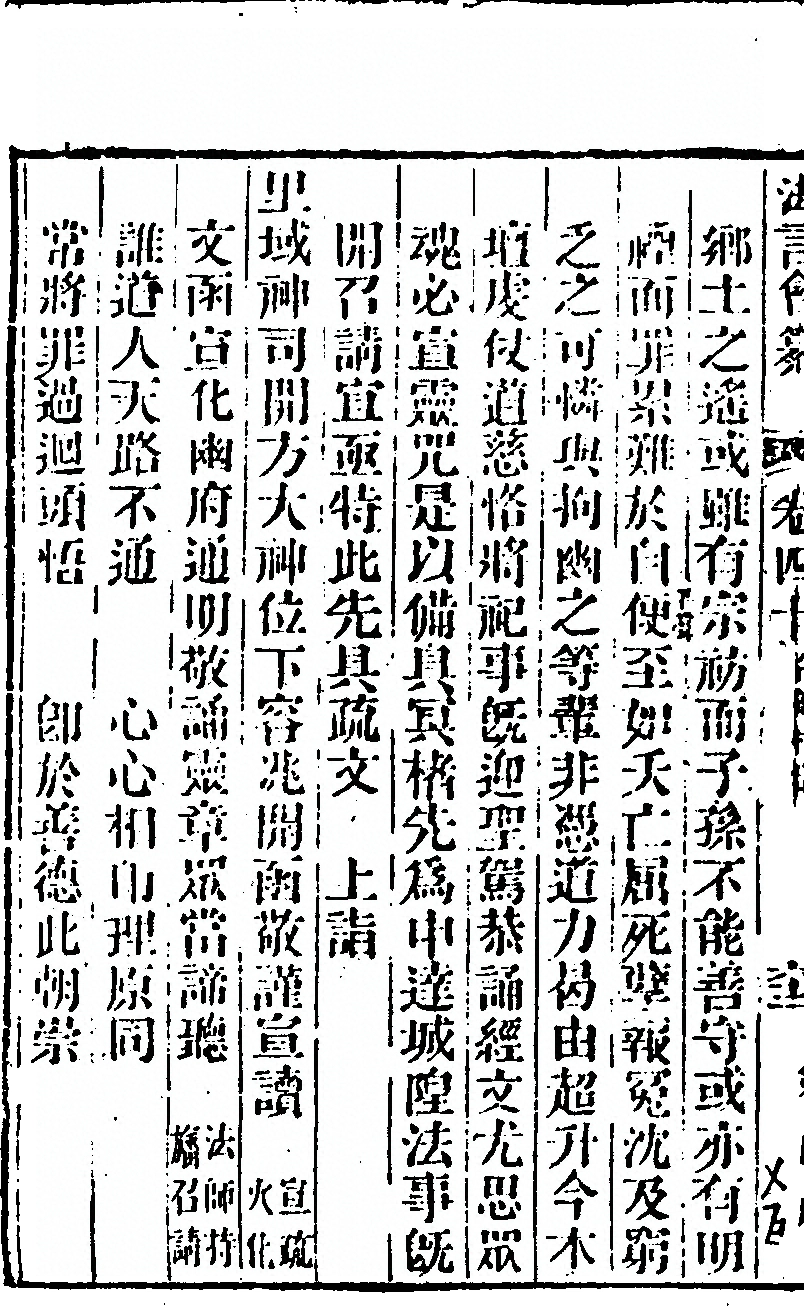 法言會纂 卷四十
鄉土之遙或雖有宗祊而子孫不能善守或亦有明
禋而罪累難於自便至如夭亡屈死孽報冤沈及窮
乏之可憐與拘幽之等輩非憑道力曷由超升今本
壇虔仗道慈恪將祀事旣迎聖駕恭誦經文尤思眾
魂必宣靈咒是以備具冥楮先爲申達城隍法事旣
開召請宜亟特此先具疏文 上詣
里域神司開方大神位下容兆開函敬謹宣讀 宣疏火化
文函宣化幽府通明敬誦靈章眾當諦聽 法師持旛召請
誰道人天路不通 心心相印理原同
常將罪過迴頭悟 卽於善德此朝崇